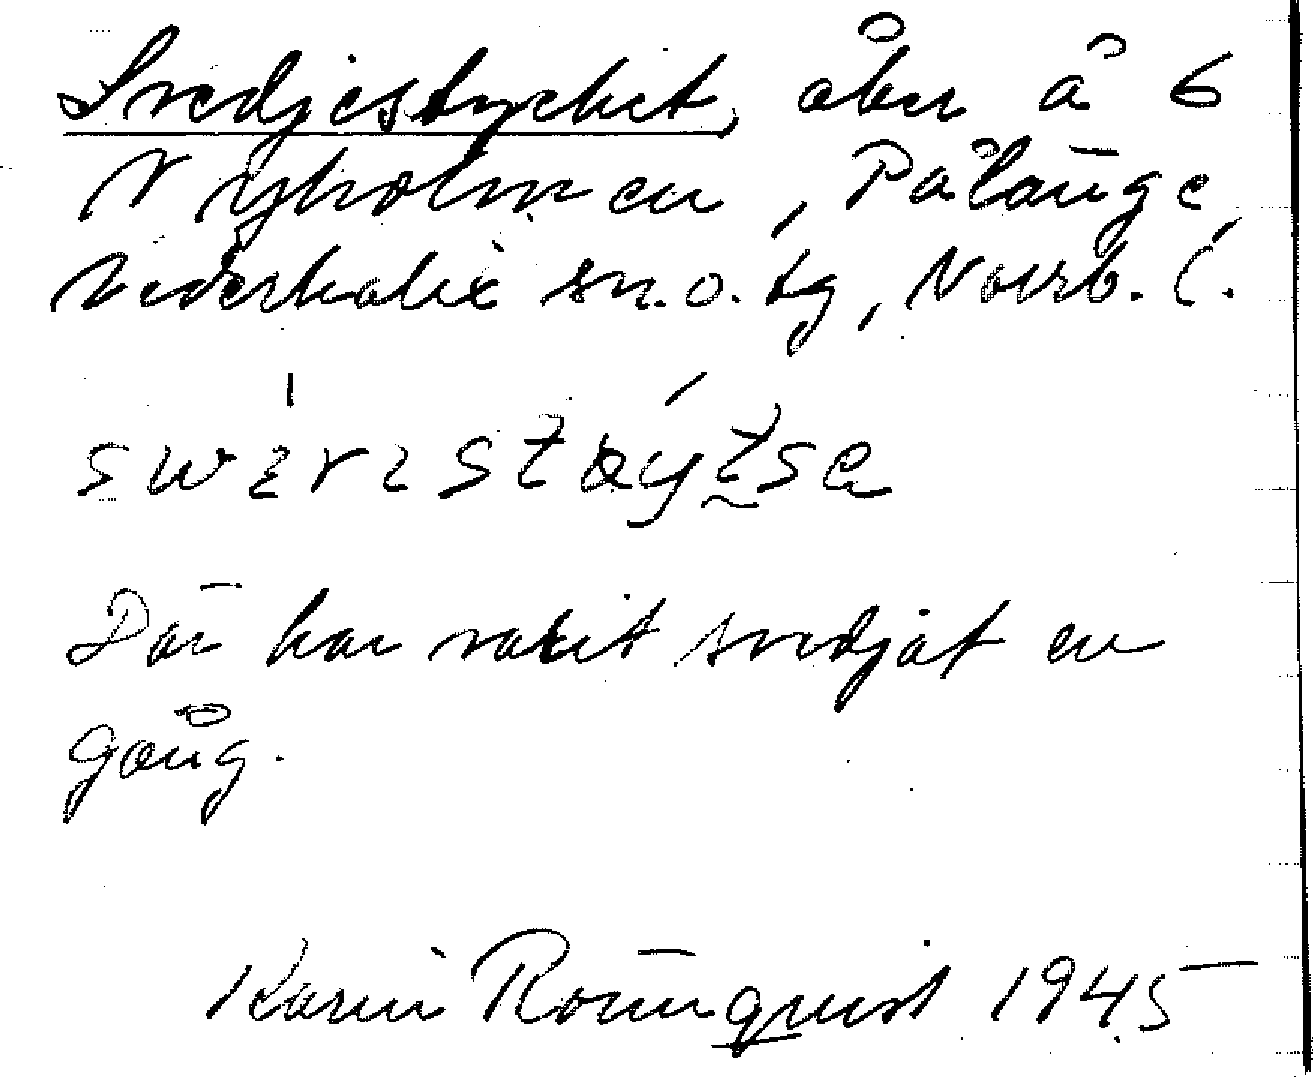 Svedjestycket, åker å 6
N Ryholmen, Pålänge,
Nederkalix sn. o. tg, Norrb. l.
Där har varit svedjat en
gång.
Karin Rönnquist 1945